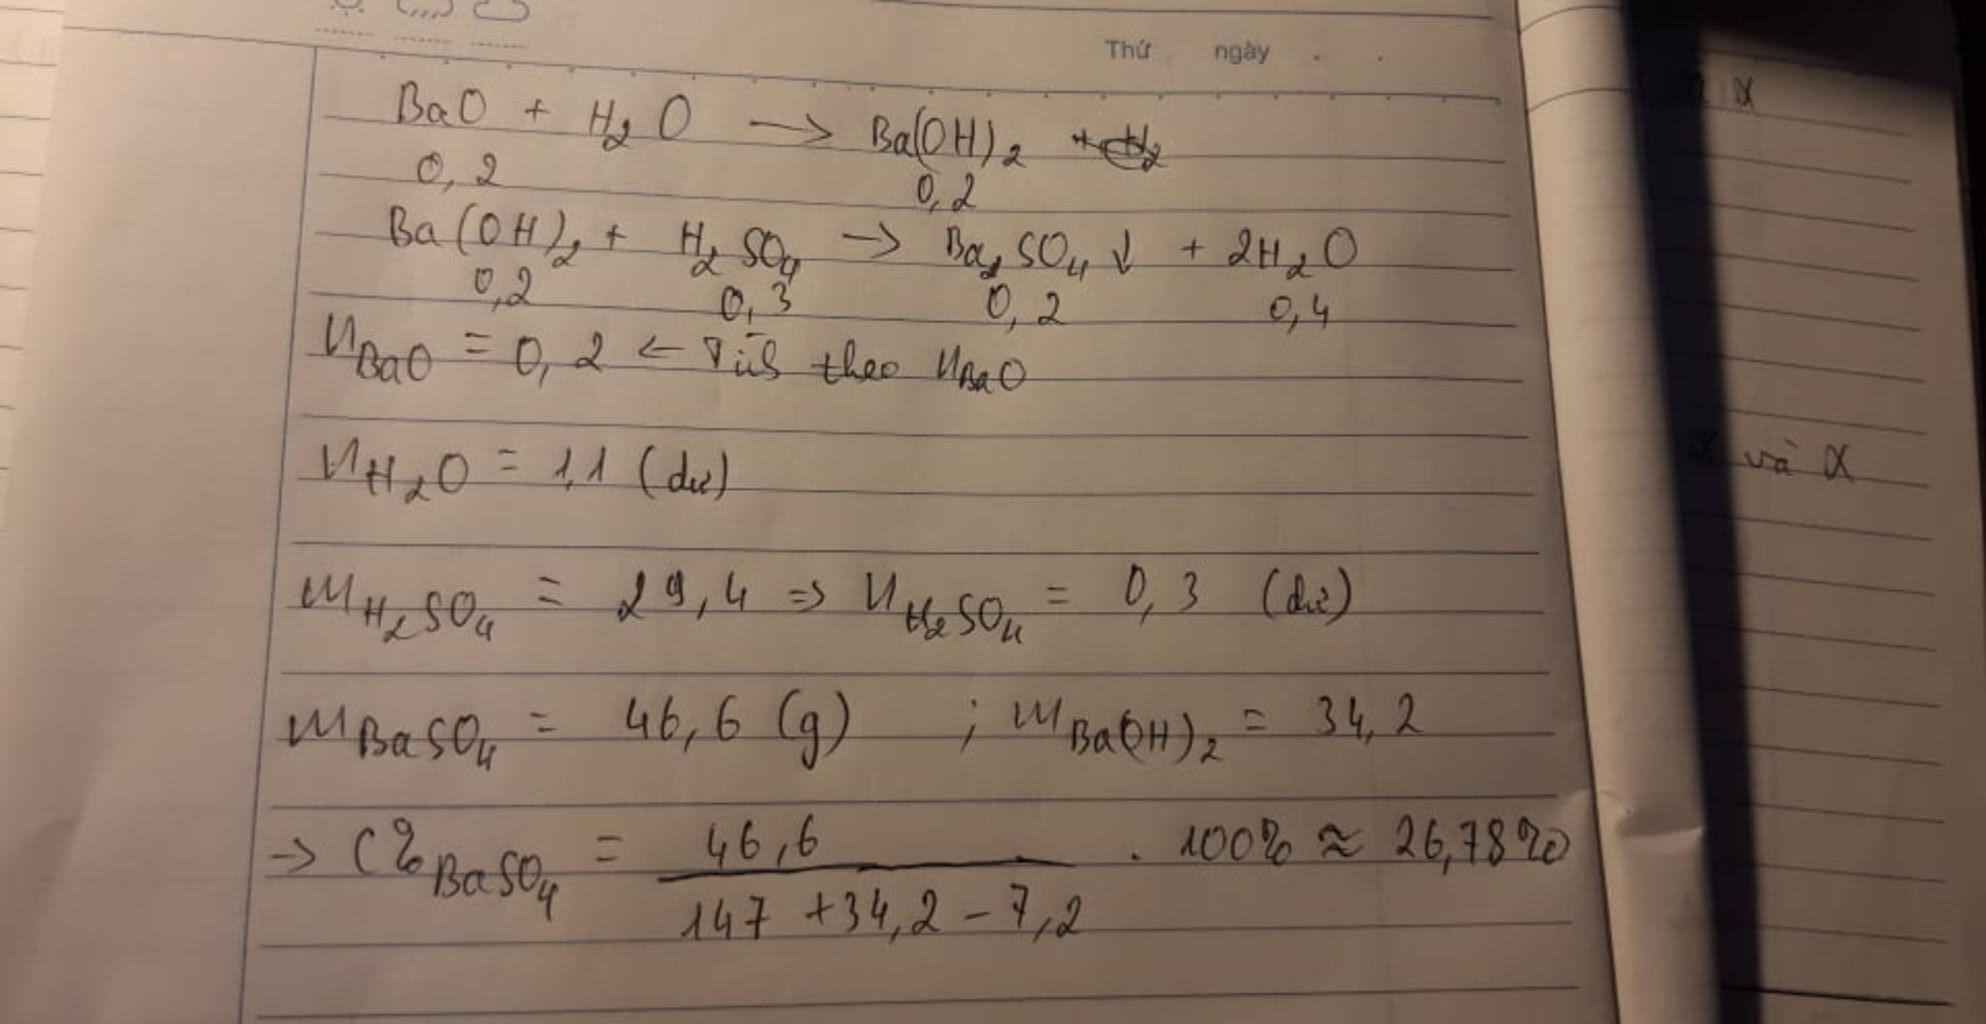 Thứ ngày . .
BaO + H₂O → Ba(OH)₂
0,2 0,2
Ba(OH)₂ + H₂SO₄ → Ba₂SO₄↓ + 2H₂O
0,2 0,3 0,2 0,4
n BaO = 0,2 ← theo n BaO
n H₂O = 1,1 (dư)
m H₂SO₄ = 29,4 => n H₂SO₄ = 0,3 (dư)
m BaSO₄ = 46,6 (g) ; m Ba(OH)₂ = 34,2
→ C% BaSO₄ = 46,6 / 147 + 34,2 - 7,2 . 100% ≈ 26,78%
và x